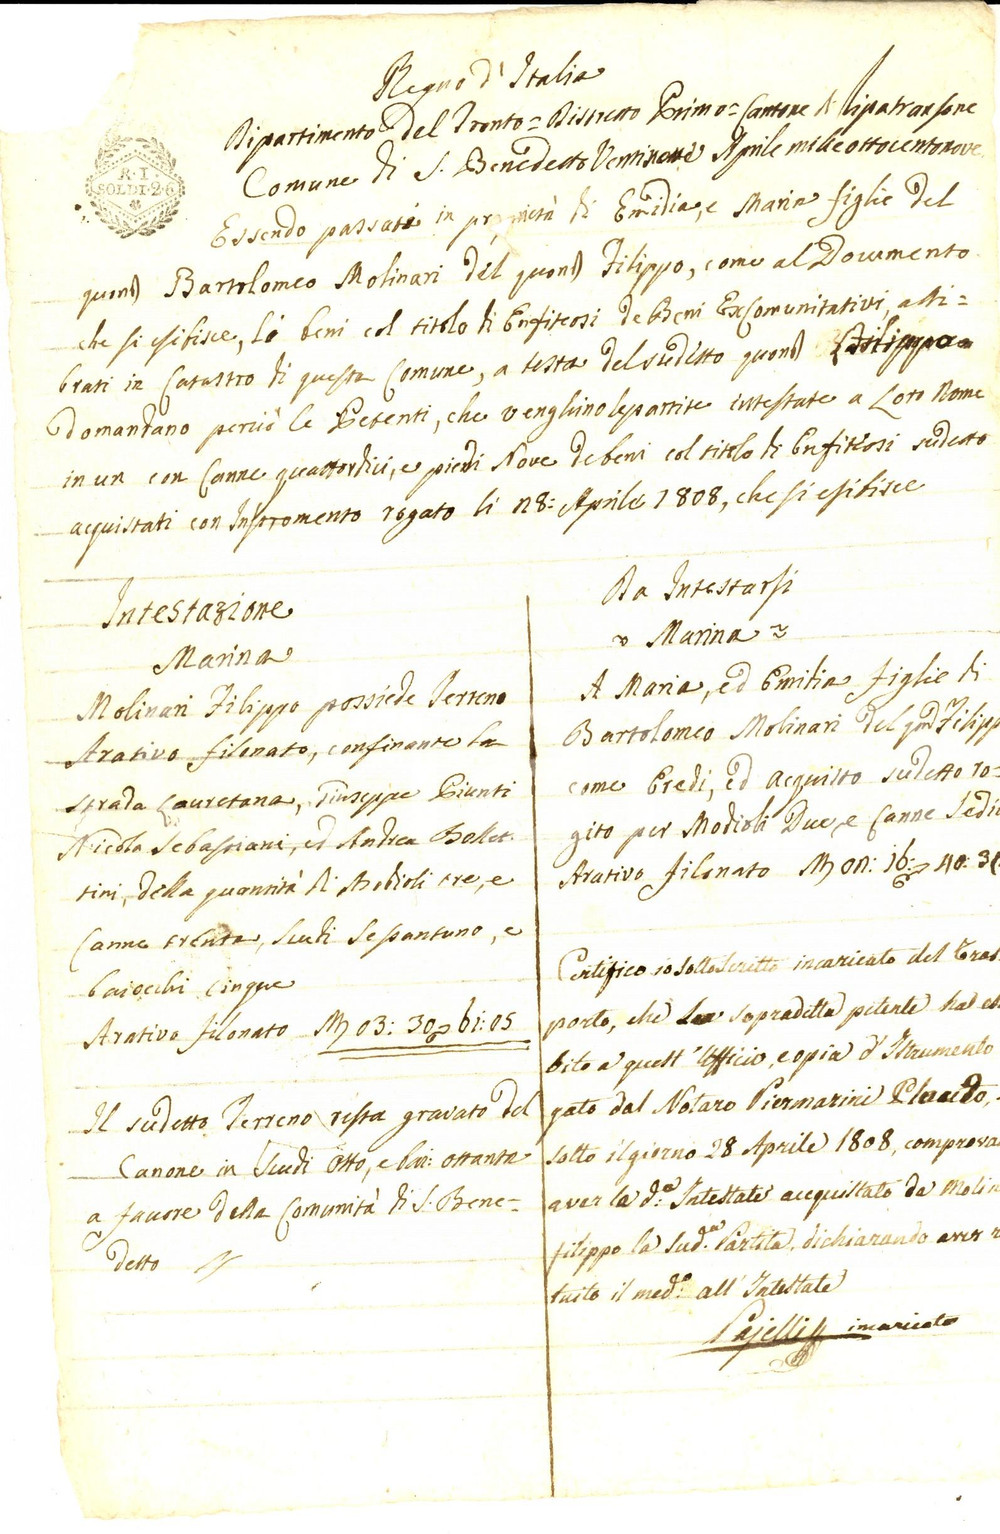 Regno d'Italia
Dipartimento del Tronto = Distretto Primo = Cantone di Ripatransone
Comune di S. Benedetto Ventinove Aprile mille ottocentonove
R. I.
SOLDI 26
Essendo passati in proprietà di Emidia, e Maria figlie del
quond Bartolomeo Molinari del quond Filippo, come al Documento
che si esibisce, li beni col titolo di Enfiteosi de Beni Excomunitativi, alli=
brati in Catastro di questa Comune, a testa del sudetto quond Filippo
domandano perciò le Petenti, che venghino le partite intestate a Loro Nome
in un con Canne quattordici, e piedi Nove de beni col titolo di Enfiteosi sudetto
acquistati con Instromento rogato li 28: Aprile 1808, che si esibisce
Intestazione
Marina
Molinari Filippo possiede Terreno
Arativo filonato, confinante la
strada Lauretana, Giuseppe Piunti
Nicola Sebastiani, ed Andrea Ballet-
tini, della quantità di Modioli tre, e
Canne trenta, Scudi Sessantuno, e
baiocchi cinque
Arativo filonato M 03: 30 61: 05
Il sudetto Terreno resta gravato del
Canone in Scudi Otto, e bai: ottanta
a favore della Comunità di S. Bene=
detto
Da Intestarsi
Marina
A Maria, ed Emidia figlie di
Bartolomeo Molinari del qnd Filipp
come Eredi, ed acquisto sudetto ro-
gito per Modioli Due, e Canne Sedic
Arativo filonato M 02: 16: 40: 34
Certifico io sottoscritto incaricato del Tras
porto, che la sopradetta petente ha es
bito a quest'Ufficio, copia d'Istrumento
gato dal Notaro Piermarini Placido,
sotto il giorno 28 Aprile 1808, comprova
aver la d.a Intestate acquistato da Molin
filippo la sud.a Partita, dichiarando aver r
tuito il med.o all'Intestate
incaricato